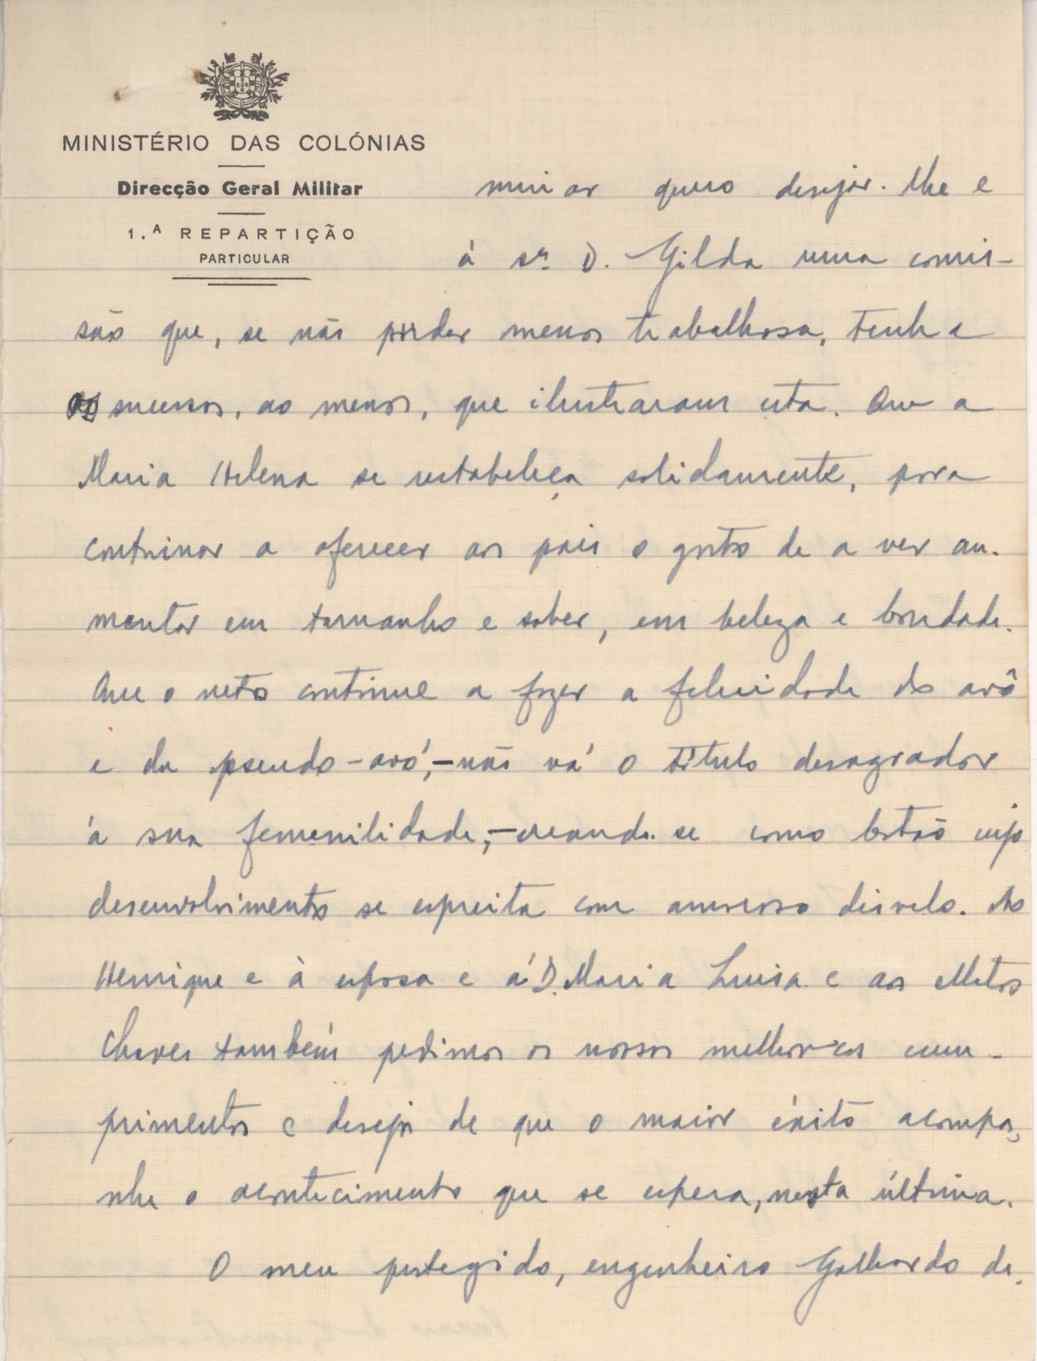 MINISTÉRIO DAS COLÓNIAS
Direcção Geral Militar
1.ª REPARTIÇÃO
PARTICULAR
minar quero desejar-lhe e
á sr.ª D. Gilda uma comis-
são que, se não puder menos trabalhosa, tenha
os sucessos, ao menos, que ilustraram esta. Que a
Maria Helena se restabeleça solidamente, para
continuar a oferecer aos pais o gosto de a ver au-
mentar em tamanho e saber, em beleza e bondade.
Que o neto continue a fazer a felicidade do avô
e da pseudo-avó,-não vá o titulo desagradar
á sua femenilidade,-creando-se como botão cujo
desenvolvimento se espreita com amoroso disvelo. Ao
Henrique e à esposa e á D. Maria Luisa e aos Matos
Chaves também pedimos os nossos melhores cum-
primentos e desejos de que o maior éxito acompa-
nhe o acontecimento que se espera, nesta última.
O meu protegido, engenheiro Galhardo de-